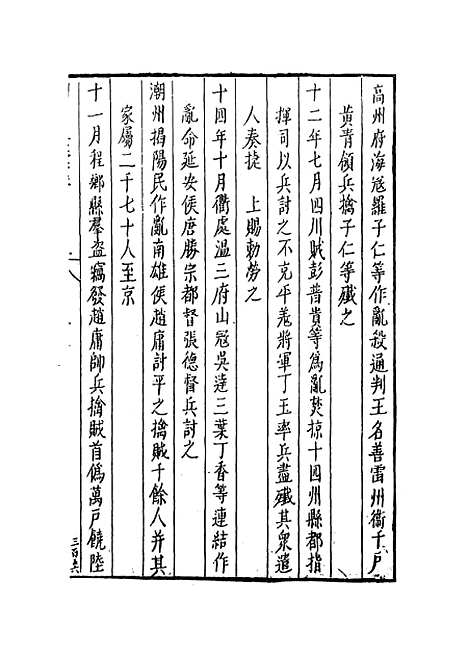 高州府海寇羅子仁等作亂殺通判王名善雷州衛千戶
黄青領兵擒子仁等殲之
十二年七月四川賊彭普貴等為亂焚掠十四州縣都指
揮司以兵討之不克平羌將軍丁玉率兵盡殲其衆遣
人奏捷　上賜勅勞之
十四年十月衢處温三府山寇吳達三葉丁香等連結作
亂命延安侯唐勝宗都督張德督兵討之
潮州揭陽民作亂南雄侯趙庸討平之擒賊千餘人并其
家屬二千七十人至京
十一月程鄉縣羣盗竊發趙庸帥兵擒賊首偽萬戶饒陸
三百六